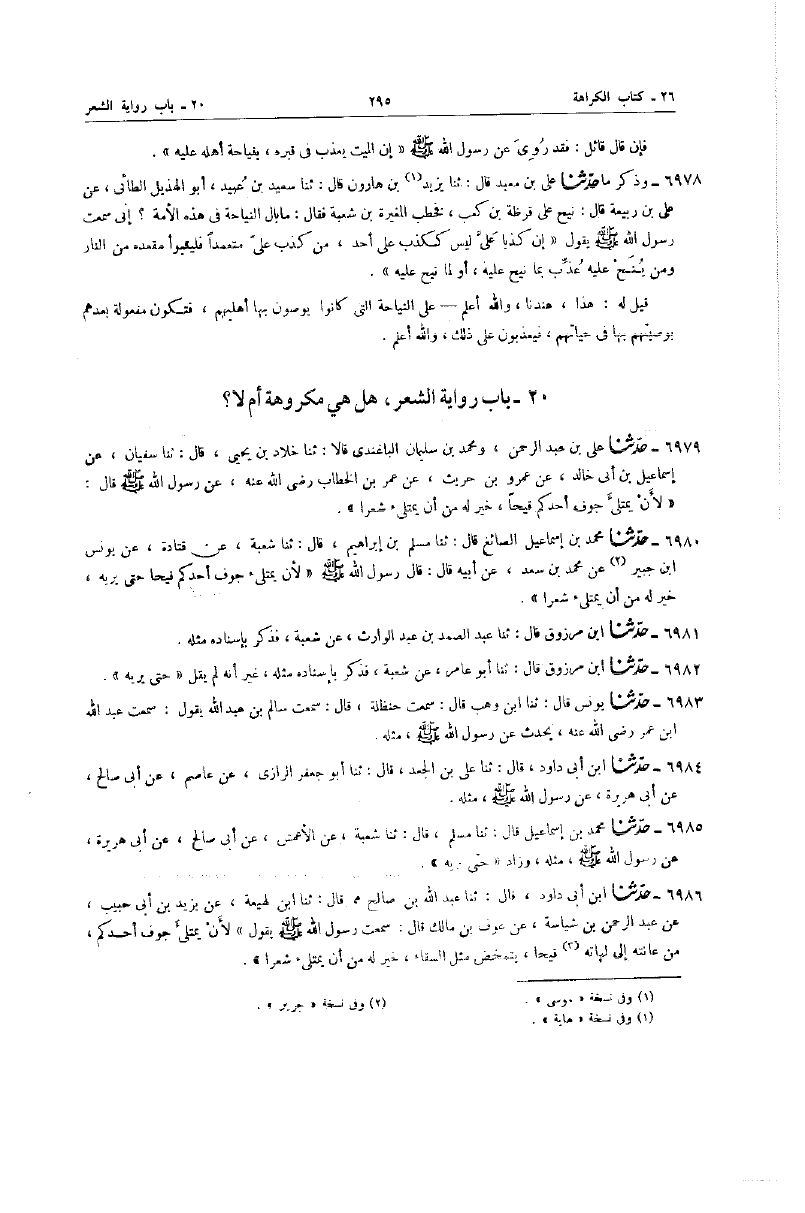 ٢٦ ـ كتاب الكراهة ٢٩٥ ٢٠ ـ باب رواية الشعر
فإن قال قائل : فقد رُوِىَ عن رسول الله ﷺ « إن الميت يعذب فى قبره ، بنياحة أهله عليه » .
٦٩٧٨ ـ وذكر ما حدّثنا على بن معبد قال : ثنا يزيد(١) بن هارون قال : ثنا سعيد بن عُبيد ، أبو الهذيل الطائى ، عن
على بن ربيعة قال : نيح على قرظة بن كعب ، فخطب المغيرة بن شعبة فقال : مابال النياحة فى هذه الأمة ؟ إنى سمعت
رسول الله ﷺ يقول « إن كذبا عَلَىَّ ليس ككذب على أحد ، من كذب علىّ متعمداً فليتبوأ مقعده من النار
ومن يُنَحْ عليه عُذِّب بما نيح عليه ، أو لما نيح عليه » .
قيل له : هذا ، عندنا ، والله أعلم — على النياحة التى كانوا يوصون بها أهليهم ، فتكون مفعولة بعدهم
بوصيّتهم بها فى حياتهم ، فيعذبون على ذلك ، والله أعلم .
٢٠ ـ باب رواية الشعر ، هل هي مكروهة أم لا ؟
٦٩٧٩ ـ حدّثنا على بن عبد الرحمن ، ومحمد بن سليمان الباغندى قالا : ثنا خلاد بن يحيى ، قال : ثنا سفيان ، عن
إسماعيل بن أبى خالد ، عن عمرو بن حريث ، عن عمر بن الخطاب رضى الله عنه ، عن رسول الله ﷺ قال :
« لأَنْ يمتلىَّ جوف أحدكم قيحاً ، خير له من أن يمتلىء شعرا » .
٦٩٨٠ ـ حدّثنا محمد بن إسماعيل الصائغ قال : ثنا مسلم بن إبراهيم ، قال : ثنا شعبة ، عن قتادة ، عن يونس
ابن جبير (٢) عن محمد بن سعد ، عن أبيه قال : قال رسول الله ﷺ « لأن يمتلىء جوف أحدكم قيحا حتى يريه ،
خير له من أن يمتلىء شعرا » .
٦٩٨١ ـ حدّثنا ابن مرزوق قال : ثنا عبد الصمد بن عبد الوارث ، عن شعبة ، فذكر بإسناده مثله .
٦٩٨٢ ـ حدّثنا ابن مرزوق قال : ثنا أبو عامر ، عن شعبة ، فذكر بإسناده مثله ، غير أنه لم يقل « حتى يريه » .
٦٩٨٣ ـ حدّثنا يونس قال : ثنا ابن وهب قال : سمعت حنظلة ، قال : سمعت سالم بن عبد الله يقول : سمعت عبد الله
ابن عمر رضى الله عنه ، يحدث عن رسول الله ﷺ ، مثله .
٦٩٨٤ ـ حدّثنا ابن أبى داود ، قال : ثنا على بن الجعد ، قال : ثنا أبو جعفر الرازى ، عن عاصم ، عن أبى صالح ،
عن أبى هريرة ، عن رسول الله ﷺ ، مثله .
٦٩٨٥ ـ حدّثنا محمد بن إسماعيل قال : ثنا مسلم ، قال : ثنا شعبة ، عن الأعمش ، عن أبى صالح ، عن أبى هريرة ،
عن رسول الله ﷺ ، مثله ، وزاد « حتى يريه » .
٦٩٨٦ ـ حدّثنا ابن أبى داود ، قال : ثنا عبد الله بن صالح م قال : ثنا ابن لهيعة ، عن يزيد بن أبى حبيب ،
عن عبد الرحمن بن شماسة ، عن عوف بن مالك قال : سمعت رسول الله ﷺ يقول « لأَنْ يمتلىَّ جوف أحدكم ،
من عانته إلى لهاته (٣) قيحا ، يتمخض مثل السقاء ، خير له من أن يمتلىء شعرا » .
(١) وفى نسخة « موسى » . (٢) وفى نسخة « جرير » .
(١) وفى نسخة « هاية » .